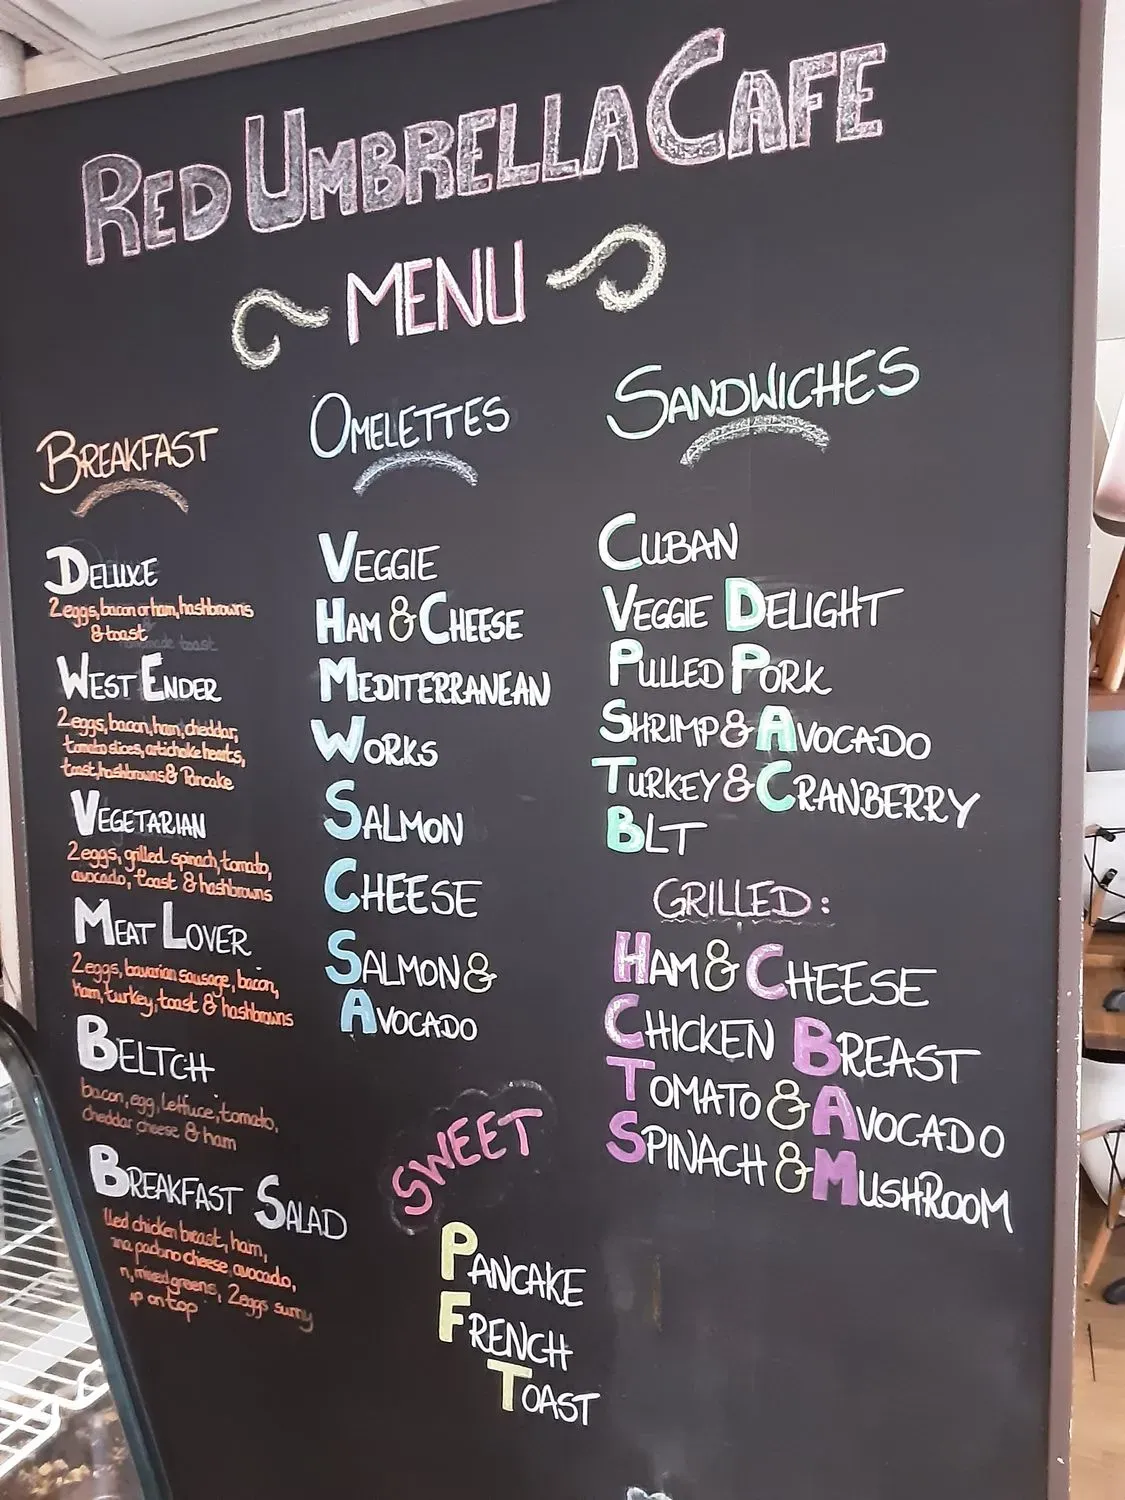 RED UMBRELLA CAFE
MENU
BREAKFAST
DELUXE
2 eggs, bacon or ham, hashbrowns
& toast
WEST ENDER
2 eggs, bacon, ham, cheddar,
tomato slices, artichoke hearts,
toast, hashbrowns & Pancake
VEGETARIAN
2 eggs, grilled spinach, tomato,
avocado, toast & hashbrowns
MEAT LOVER
2 eggs, bavarian sausage, bacon,
ham, turkey, toast & hashbrowns
BELTCH
bacon, egg, lettuce, tomato,
cheddar cheese & ham
BREAKFAST SALAD
chicken breast, ham,
cheese, avocado,
mixed greens, 2 eggs sunny
on top
OMELETTES
VEGGIE
HAM & CHEESE
MEDITERRANEAN
WORKS
SALMON
CHEESE
SALMON &
AVOCADO
SWEET
PANCAKE
FRENCH
TOAST
SANDWICHES
CUBAN
VEGGIE DELIGHT
PULLED PORK
SHRIMP & AVOCADO
TURKEY & CRANBERRY
BLT
GRILLED:
HAM & CHEESE
CHICKEN BREAST
TOMATO & AVOCADO
SPINACH & MUSHROOM